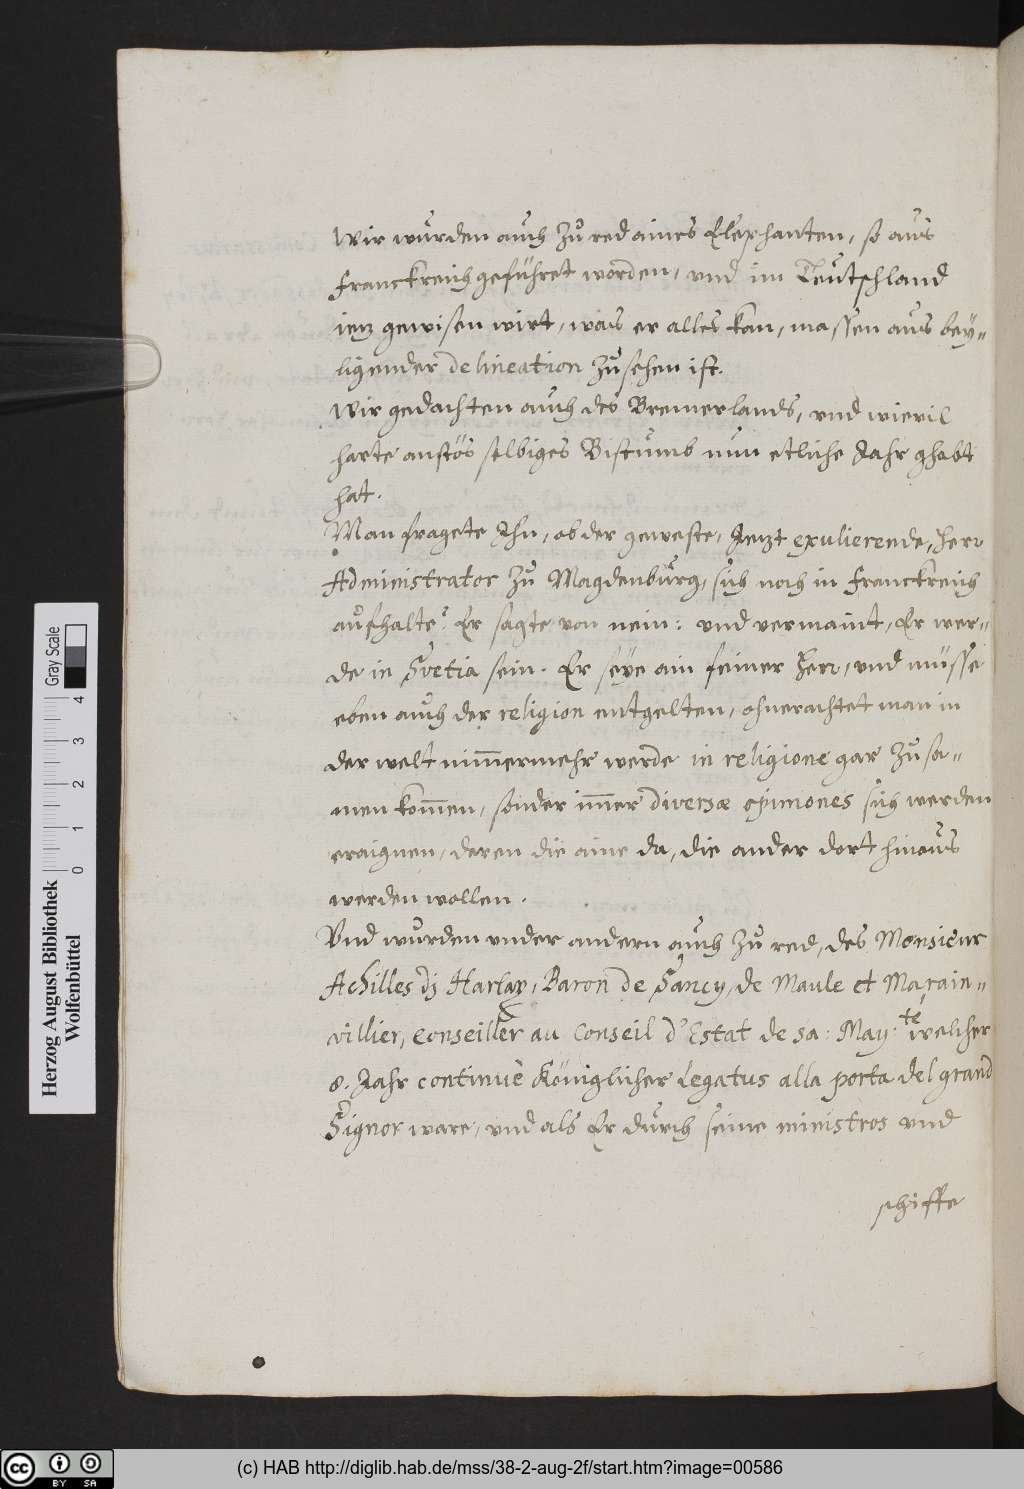 Wir wurden auch zu red aines Elephanten, so aus
Franckreich geführet worden, und im Teutschland
iez gewisen wirt, was er alles kan, massen aus bey-
ligender delineation zu sehen ist.
Wir gedachten auch des Bremerlands, und wievil
harte anstös selbiges Bistumb nun etliche Jahr ghabt
hat.
Man fragete Ihn, ob der geweste, Jenzt exulierende, Herr
Administrator zu Magdenburg, sich noch in Franckreich
aufhalte? Er sagte von nein: und vermaint, Er wer-
de in Svetia sein. Er seye ain feiner Herr, und müsse
eben auch der religion entgelten, ohnerachtet man in
der welt nim̄ermehr werde in religione gar zusa-
men kom̄en, sonder im̄er diversæ opiniones sich werden
eraignen, deren die aine da, die ander dort hinaus
werden wollen.
Und wurden under andern auch zu red, des Monsieur
Achilles dj Harlay, Baron de Sancy, de Maule et Marain-
villier, Conseiller au Conseil d'Estat de sa: May:te welcher
8. Jahr continuè Königlicher Legatus alla porta del grand
Signor ware, und als Er durch seine ministros und
schiffe
Herzog August Bibliothek
Wolfenbüttel
0 1 2 3 4
Gray Scale
cc BY SA
(c) HAB http://diglib.hab.de/mss/38-2-aug-2f/start.htm?image=00586